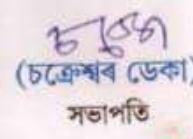 (চক্ৰেশ্বৰ ডেকা)
সভাপতি